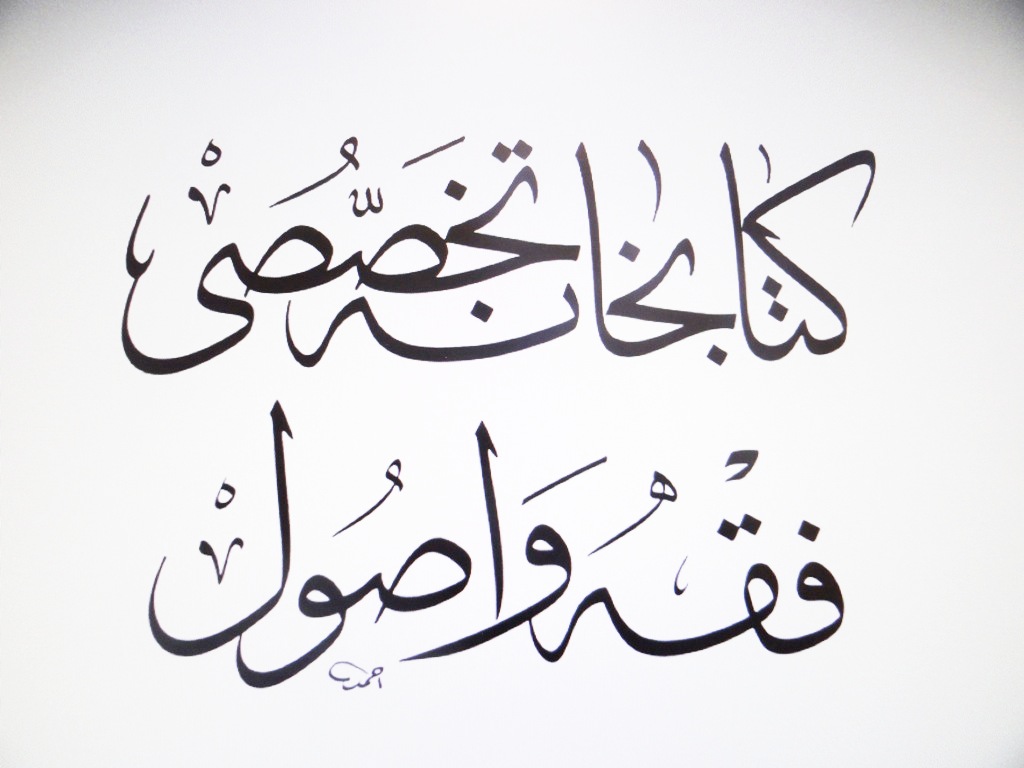 کتابخانه تخصّصُی
فقه وَاصُول
احمد